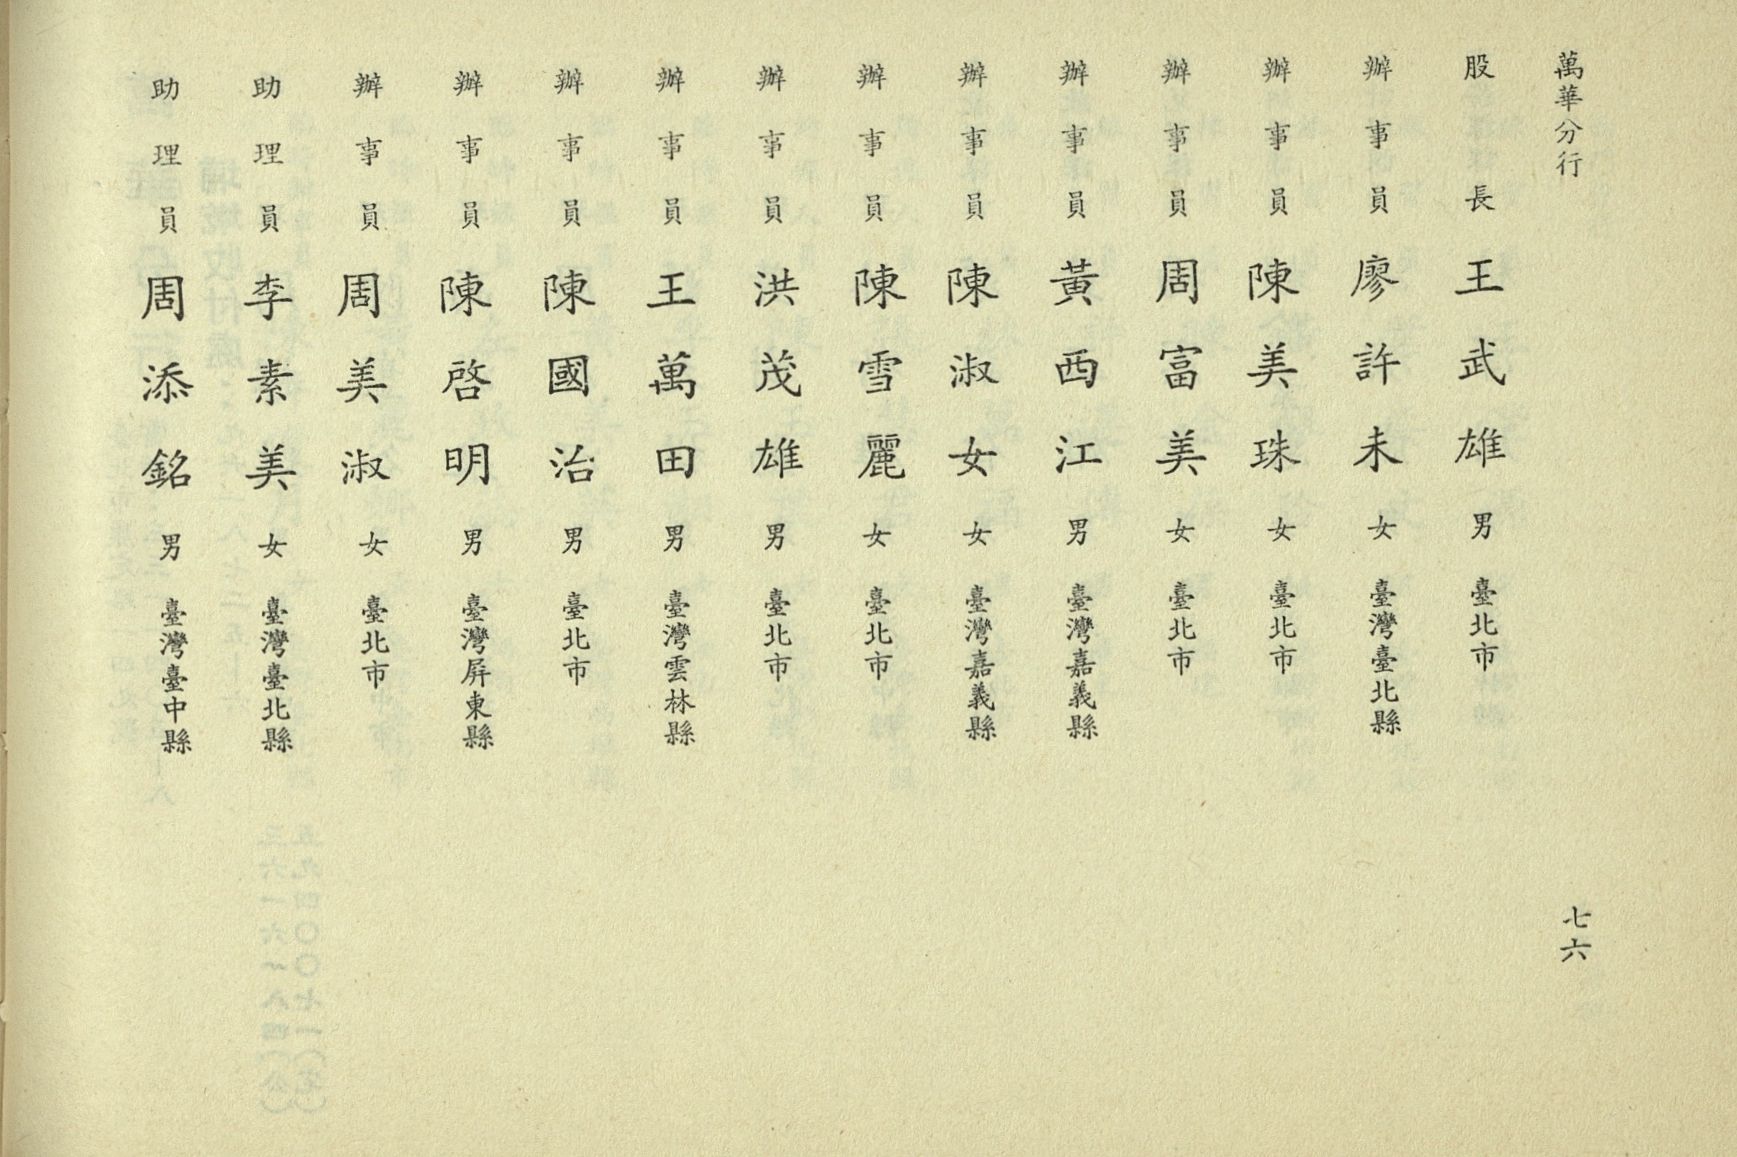 萬華分行
七六
股長 王武雄 男 臺北市
辦事員 廖許未 女 臺灣臺北縣
辦事員 陳美珠 女 臺北市
辦事員 周富美 女 臺北市
辦事員 黃西江 男 臺灣嘉義縣
辦事員 陳淑女 女 臺灣嘉義縣
辦事員 陳雪麗 女 臺北市
辦事員 洪茂雄 男 臺北市
辦事員 王萬田 男 臺灣雲林縣
辦事員 陳國治 男 臺北市
辦事員 陳啓明 男 臺灣屏東縣
辦事員 周美淑 女 臺北市
助理員 李素美 女 臺灣臺北縣
助理員 周添銘 男 臺灣臺中縣